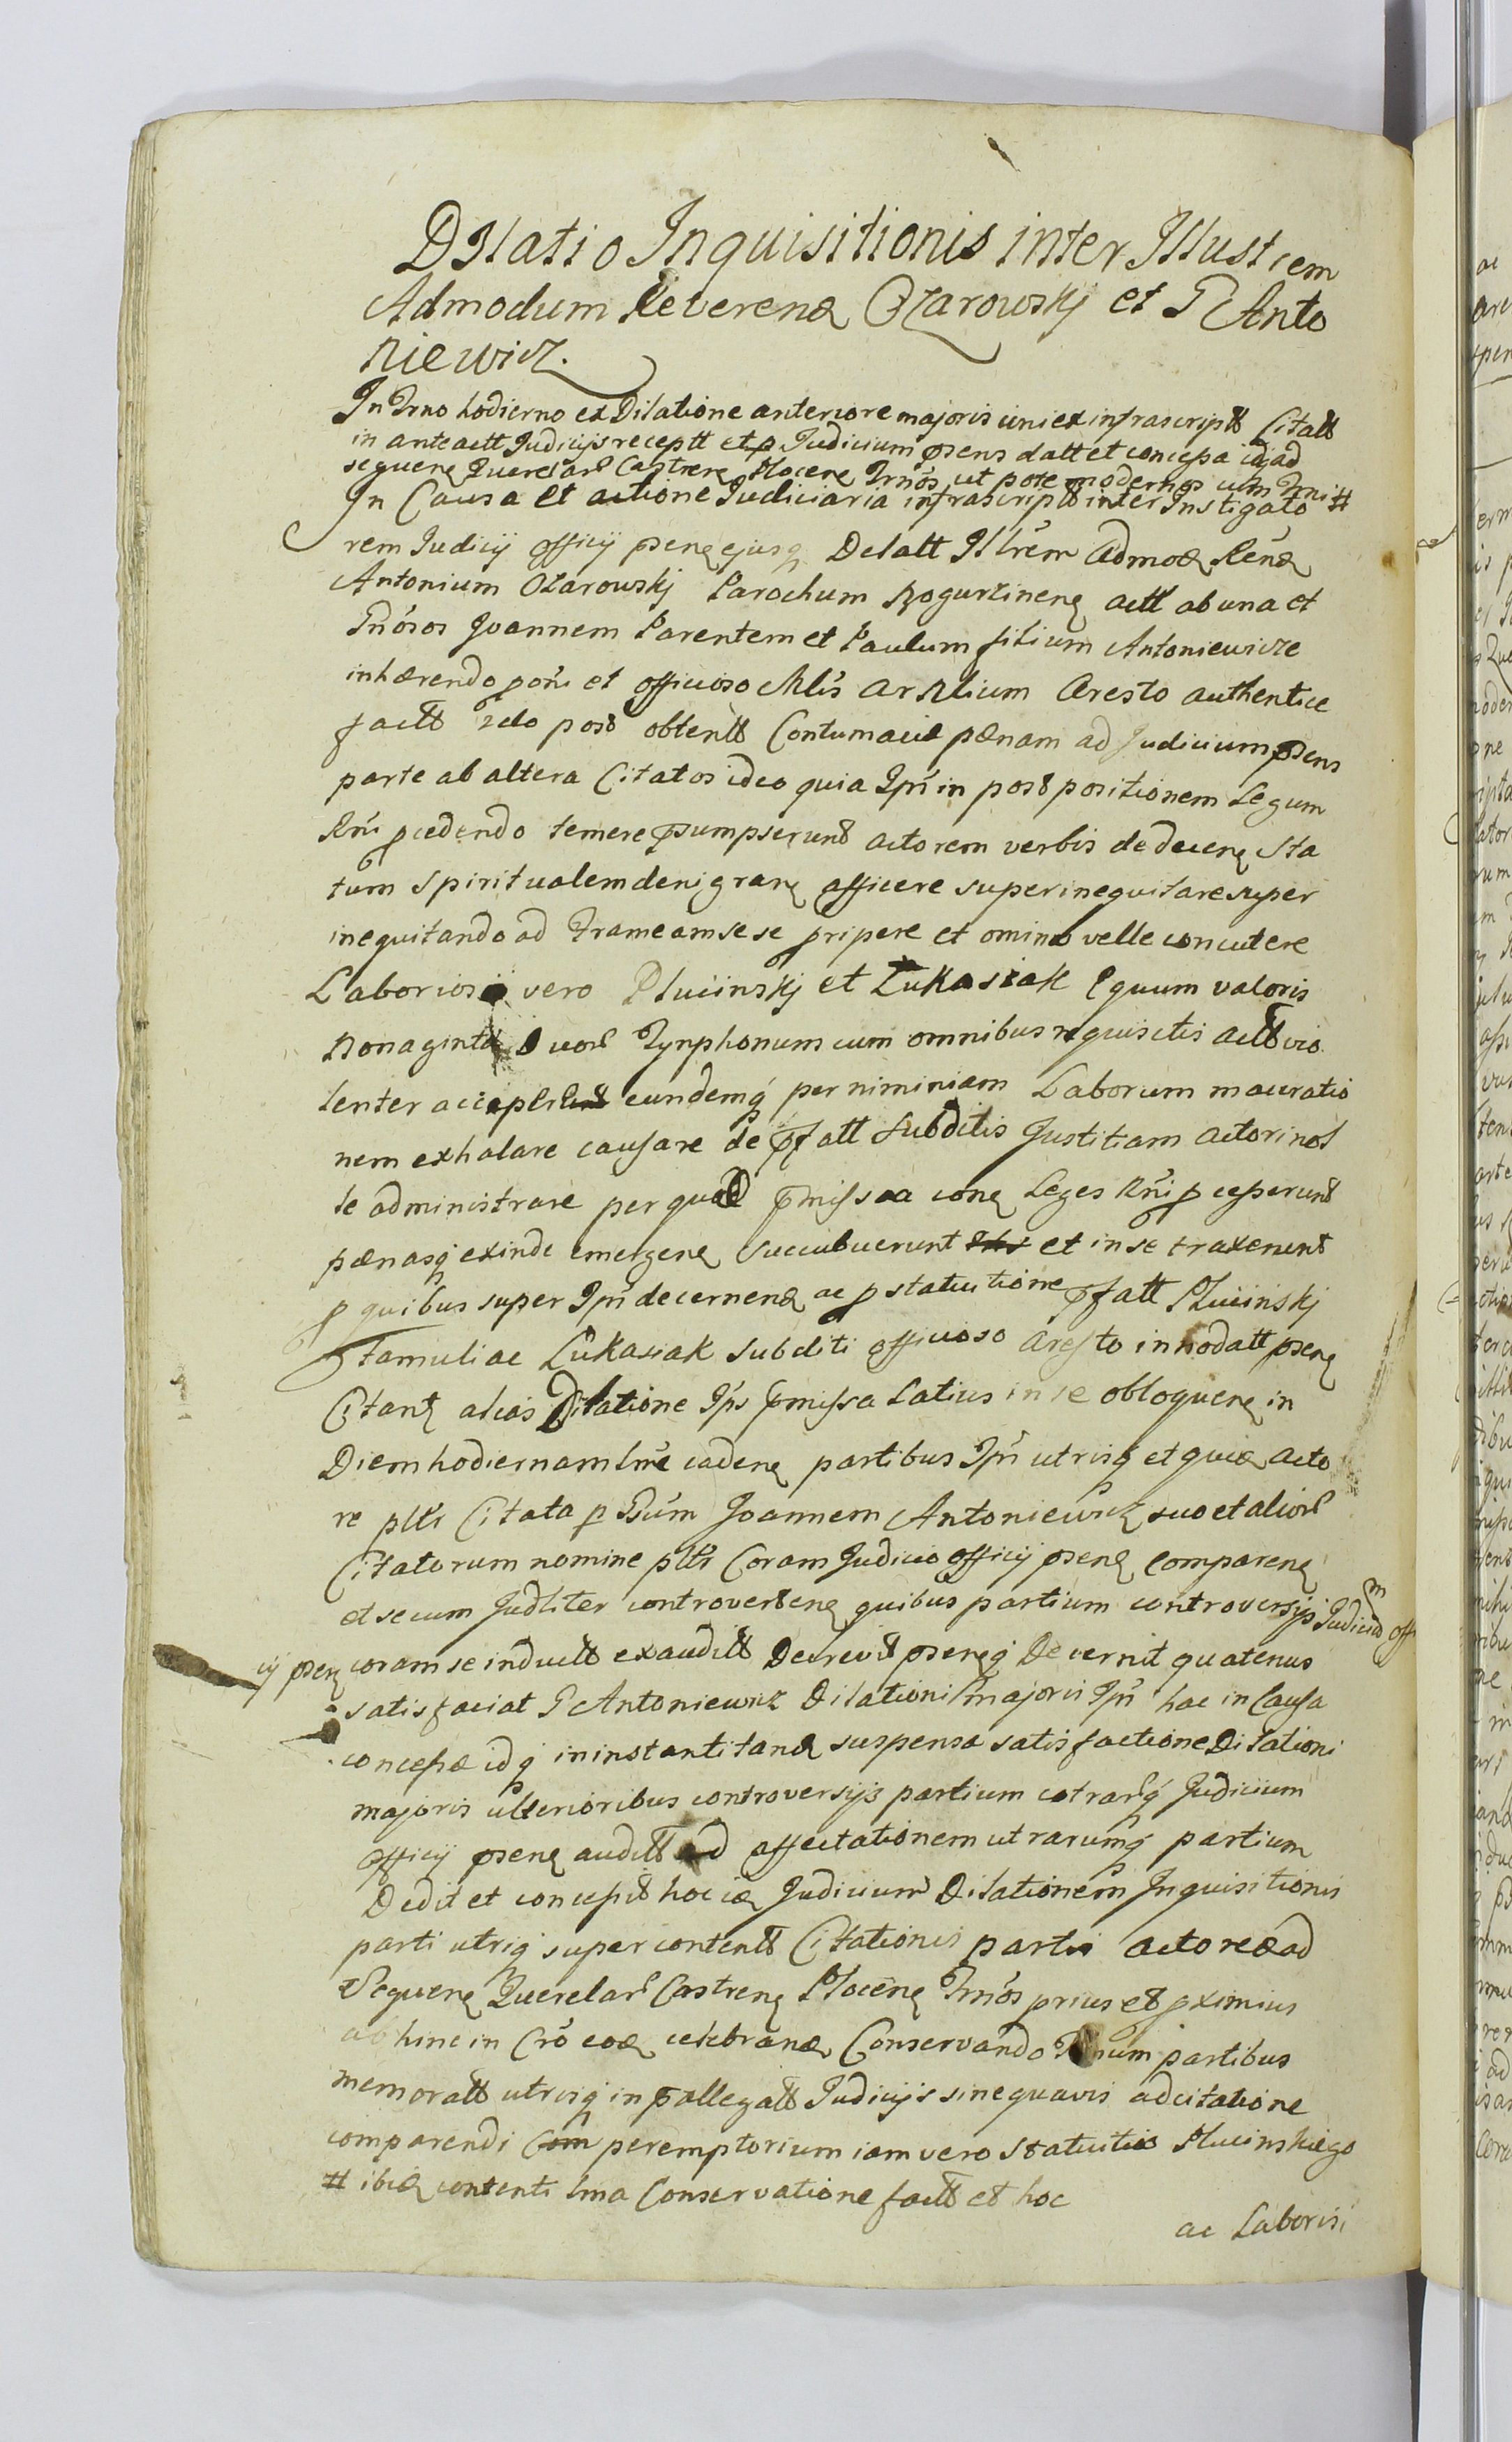 Dilatio Inquisitionis inter Illustrem
Admodum Reverend Ozarowskj et G Anto
niewicz.
In Trno hodierno ex Dilatione anteriore majoris uni ex infrascriptt Citatt
in anteactt Judicijs receptt et p Judicium psens datt et concessa ad
sequen Querelar Castren Plocen Trnos ut pote modernos cum Trni #
In Causa et actione Judiciaria infrascriptt inter Instigato
rem Judicij officij psen ejusq Delatt Illrem Admod Rend
Antonium Ozarowskj Parochum Rogurzinen actt ab una et
Gnosos Joannem Parentem et Paulum filium Antoniewicze
inhærendo poni et officioso Mlis Arxlium Aresto authentice
factt post obtentt Contumaciæ pænam ad Judicium psens
parte ab altera Citatos ideo quia Ipsi in postpositionem Legum
Rni pcedendo temere psumpserunt actorem verbis dedecen Sta
tum Spiritualem denigran afficere superinequitare super
inequitando ad Frameam sese pripere et omino velle concutere
Laboriosi vero Pluciinskj et Lukasiak Equum valoris
Nonaginta Duor Tynphonum cum omnibus requisitis actt vio
lenter acceperunt eundemq per niminiam Laborum maceratio
nem exhalare causare de pfatt Subditis Justitiam actori nol
le administrare per quod pmissa con Leges Rni pcesserunt
pænasq exinde emergen Succubuerunt et in se traxerunt
p quibus super Ipsi decernend ac pstatuitione pfatt Pluciinskj
Famuli ac Lukasiak Subditi officioso Aresto innodatt psen
Citant alias Dilatione Ips pmissa Latius in se obloquen in
Diem hodiernam lrme caden partibus Ipsi utrisq et quia acto
re pltr Citata p Gsum Joannem Antoniewicz suo et alior
Citatorum nomine pltr Coram Judicio officij psen comparen
et secum Judliter controverten quibus partium controversijs Judicium offi
cij psen coram se inductt exauditt Decrevit psenq Decernit quatenus
satisfaciat G Antoniewicz Dilationi majoris Ipsi hac in Causa
concessæ idq in instanti tand suspensa satisfactione Dilationi
majoris ulterioribus controversijs partium utrarq Judicium
officij psen auditt ad affectationem utrarumq partium
Dedit et concessit hoc id Judicium Dilationem Inquisitionis
parti utriq super contentt Citationis partis actoreæ ad
Sequen Querelar Castren Plocen Trnos prius et pximius
ab hinc in Cro eod celebrand Conservando Trnum partibus
memoratt utrisq in pallegatt Judicijs sine quavis adcitatione
comparendi peremptorium iam vero statuitio Plucinskiego
# ibid contenti lma Conservatione factt et hoc
ac Laborisi